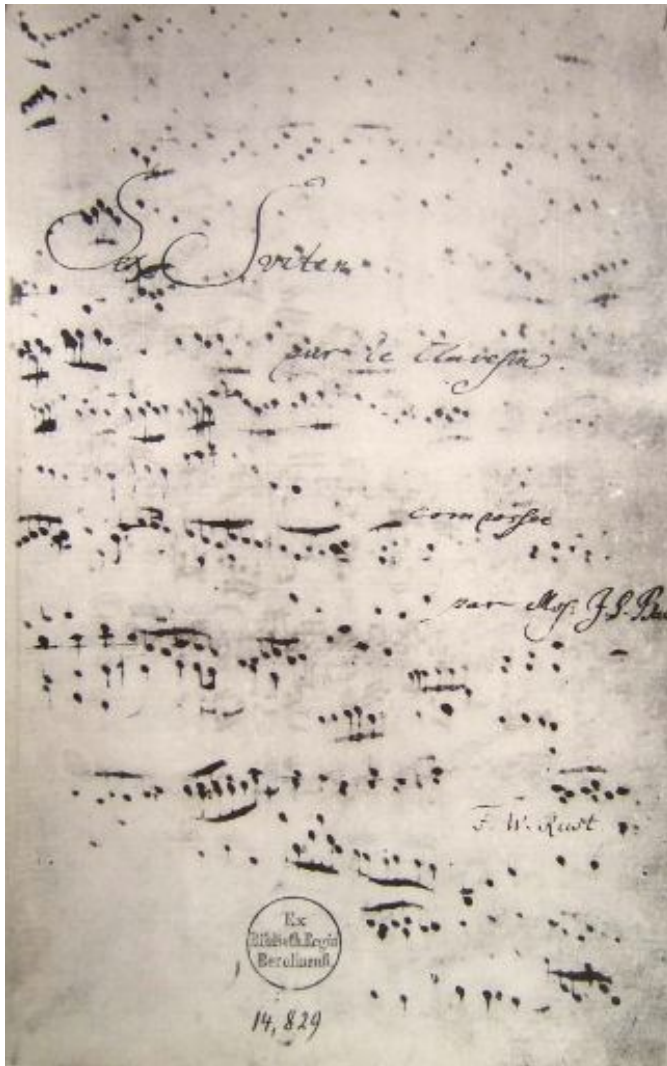 Sex Sviten
par le Clavesin.
composeè
par Mos: J. S. Bac
F. W. Rust
Ex
Biblioth. Regia
Berolinensi.
14,829